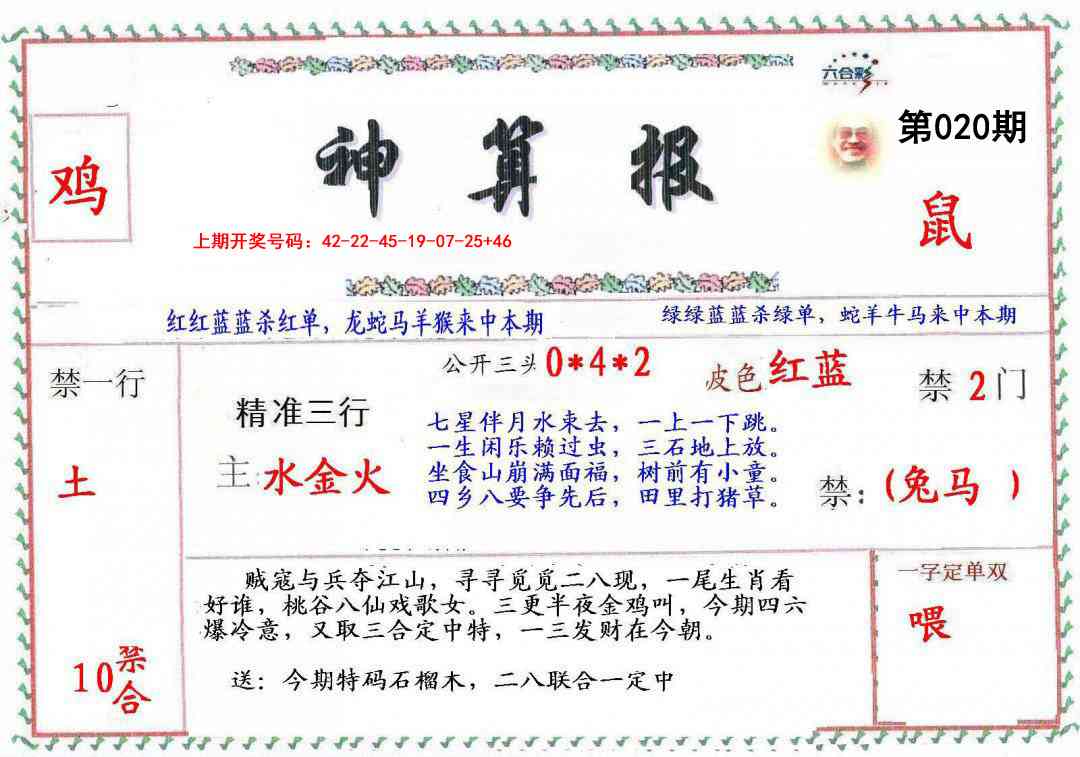 六合彩
神算报
第020期
鸡
鼠
上期开奖号码：42-22-45-19-07-25+46
红红蓝蓝杀红单，龙蛇马羊猴来中本期
绿绿蓝蓝杀绿单，蛇羊牛马来中本期
禁一行
土
10禁合
公开三头0*4*2
波色红蓝
禁2门
精准三行
主：水金火
七星伴月水束去，一上一下跳。
一生闲乐赖过虫，三石地上放。
坐食山崩满面福，树前有小童。
四乡八要争先后，田里打猪草。
禁：(兔马 )
贼寇与兵夺江山，寻寻觅觅二八现，一尾生肖看
好谁，桃谷八仙戏歌女。三更半夜金鸡叫，今期四六
爆冷意，又取三合定中特，一三发财在今朝。
送：今期特码石榴木，二八联合一定中
一字定单双
喂